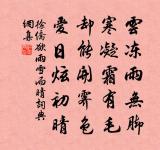 雲凍雨無脚
寒凝霜有毛
却能開霽色
愛日炫初晴
徐僑欲雨雪而晴詞典
網集